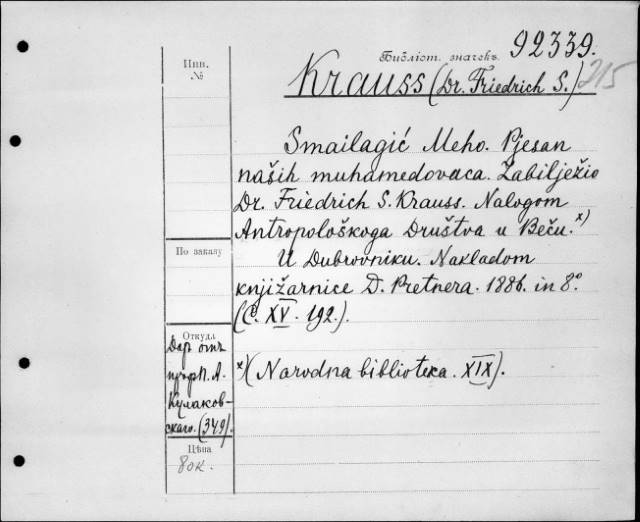 Библіот. значекъ 92339.
Инв.
№
Krauss (Dr. Friedrich S.) 215
Smailagić Meho. Pjesan
naših muhamedovaca. Zabilježio
Dr. Friedrich S. Krauss. Nalogom
Antropološkoga Društva u Beču. x)
По заказу
U Dubrovniku. Nakladom
knjižarnice D. Pretnera. 1886. in 8°.
(C. XV. 192.).
Откуда
Даръ отъ
проф. П. А.
Кулаков-
скаго. (349).
x) (Narodna biblioteka. XIX).
Цѣна
80к.